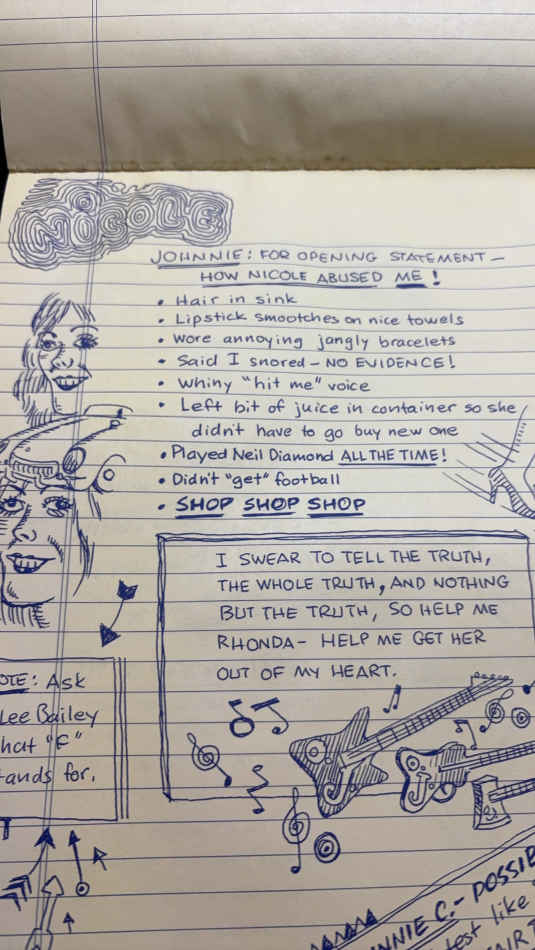 NICOLE
JOHNNIE: FOR OPENING STATEMENT —
HOW NICOLE ABUSED ME!
• Hair in sink
• Lipstick smootches on nice towels
• Wore annoying jangly bracelets
• Said I snored — NO EVIDENCE!
• Whiny "hit me" voice
• Left bit of juice in container so she
didn't have to go buy new one
• Played Neil Diamond ALL THE TIME!
• Didn't "get" football
• SHOP SHOP SHOP
I SWEAR TO TELL THE TRUTH,
THE WHOLE TRUTH, AND NOTHING
BUT THE TRUTH, SO HELP ME
RHONDA— HELP ME GET HER
OUT OF MY HEART.
OTE: Ask
Lee Bailey
hat "F"
tands for.
NNIE C.— POSSIB
est like